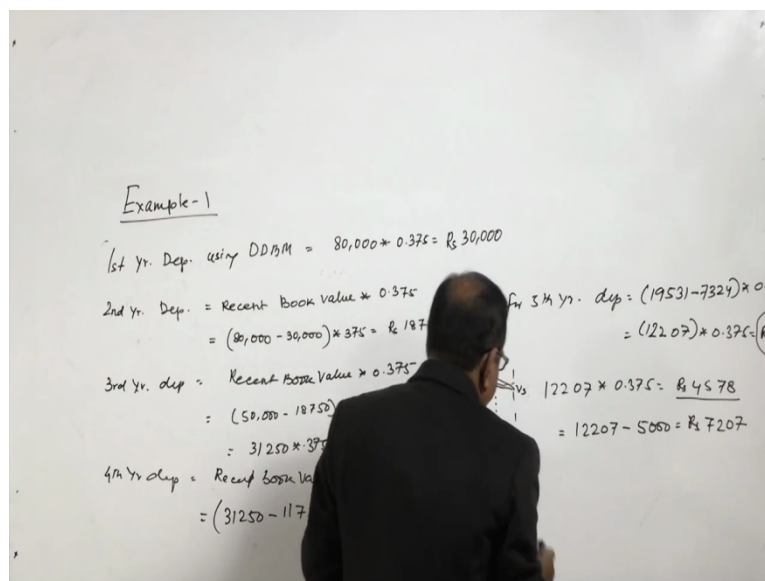 Example-1
1st Yr. Dep. using DDBM = 80,000* 0.375= Rs 30,000
2nd Yr. Dep. = Recent Book Value * 0.375
= (80,000-30,000)*375= Rs 187
3rd Yr. dep = Recent Book Value * 0.375
= (50,000-18750)
= 31250*.375
4th Yr dep = Recent book Va
= (31250-117
for 5th yr. dep = (19531-7324)*0.
= (12207)*0.375=
Vs 12207*0.375= Rs 4578
= 12207-5000= Rs 7207